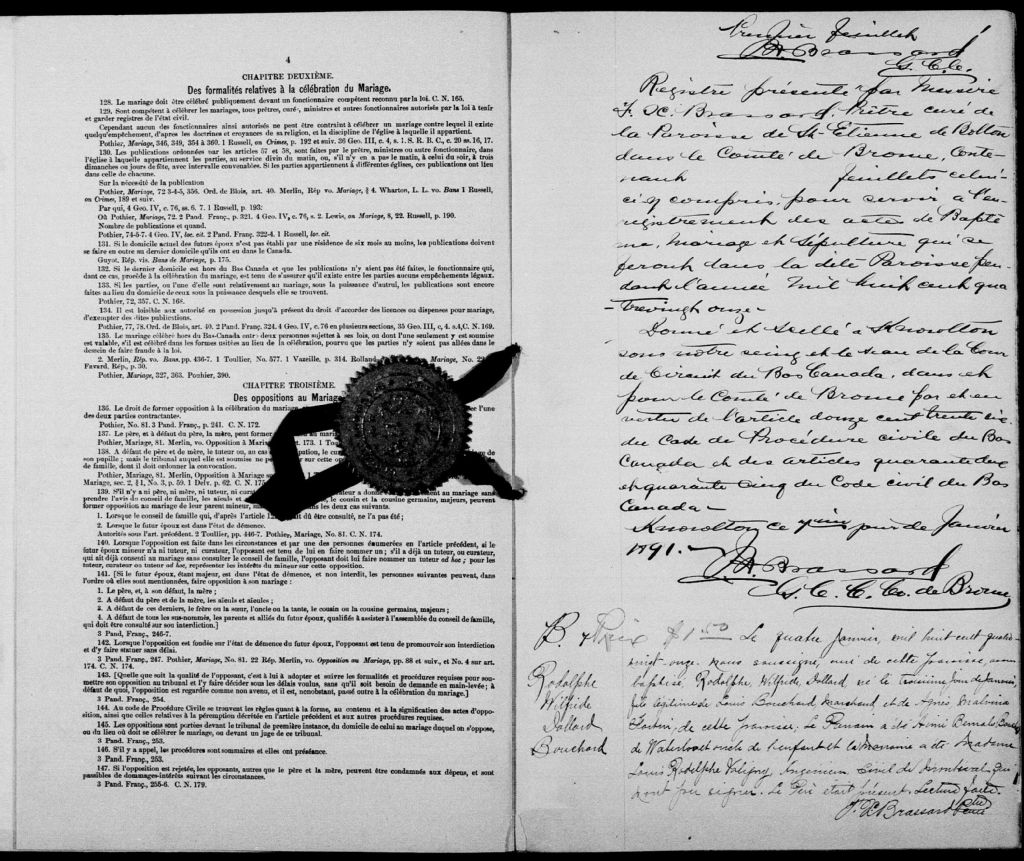 4
CHAPITRE DEUXIÈME.
Des formalités relatives à la célébration du Mariage.
128. Le mariage doit être célébré publiquement devant un fonctionnaire compétent reconnu par la loi. C. N. 165.
129. Sont compétents à célébrer les mariages, tous prêtres, curés, ministres et autres fonctionnaires autorisés par la loi à tenir
et garder registres de l'état civil.
Cependant aucun des fonctionnaires ainsi autorisés ne peut être contraint à célébrer un mariage contre lequel il existe
quelqu'empêchement, d'après les doctrines et croyances de sa religion, et la discipline de l'église à laquelle il appartient.
Pothier, Mariage, 346, 349, 354 à 360. 1 Russell, on Crimes, p. 192 et suiv. 36 Geo. III, c. 4, s. 1. S. R. B. C., c. 20 ss. 16, 17.
130. Les publications ordonnées par les articles 57 et 58, sont faites par le prêtre, ministre ou autre fonctionnaire, dans
l'église à laquelle appartiennent les parties, au service divin du matin, ou, s'il n'y en a pas le matin, à celui du soir, à trois
dimanches ou jours de fête, avec intervalle convenables. Si les parties appartiennent à différentes églises, ces publications ont lieu
dans celle de chacune.
Sur la nécessité de la publication
Pothier, Mariage, 72 3-4-5, 356. Ord. de Blois, art. 40. Merlin, Rép vo. Mariage, § 4. Wharton, L. L. vo. Bans 1 Russell,
on Crimes, 189 et suiv.
Par qui, 4 Geo. IV, c. 76, ss. 6. 7. 1 Russell, p. 193:
Où Pothier, Mariage, 72. 2 Pand. Franç., p. 321. 4 Geo. IV, c. 76, s. 2. Lewis, on Mariage, 8, 22. Russell, p. 190.
Nombre de publications et quand.
Pothier, 74-5-7. 4 Geo. IV, loc. cit. 2 Pand. Franç. 322-4. 1 Russell, loc. cit.
131. Si le domicile actuel des futurs époux n'est pas établi par une résidence de six mois au moins, les publications doivent
se faire en outre au dernier domicile qu'ils ont eu dans le Canada.
Guyot. Rép. vis. Bans de Mariage, p. 175.
132. Si le dernier domicile est hors du Bas Canada et que les publications n'y aient pas été faites, le fonctionnaire qui,
dans ce cas, procède à la célébration du mariage, est tenu de s'assurer qu'il existe entre les parties aucuns empêchements légaux.
133. Si les parties, ou l'une d'elles sont relativement au mariage, sous la puissance d'autrui, les publications sont encore
faites au lieu du domicile de ceux sous la puissance desquels elle se trouvent.
Pothier, 72, 357. C. N. 168.
134. Il est loisible aux autorité en possession jusqu'à présent du droit d'accorder des licences ou dispenses pour mariage,
d'exempter des dites publications.
Pothier, 77, 78. Ord. de Blois, art. 40. 2 Pand Franç. 324. 4 Geo. IV, c. 76 en plusieurs sections, 35 Geo. III, c. 4. s.4, C. N. 169.
135. Le mariage célébré hors du Bas-Canada entre deux personnes sujettes à ses lois, ou dont l'une seulement y est soumise
est valable, s'il est célébré dans les formes usitées au lieu de la célébration, pourvu que les parties n'y soient pas allées dans le
dessein de faire fraude à la loi.
2. Merlin, Rép. vo. Bans, pp. 436-7. 1 Toullier, No. 577. 1 Vazeille, p. 314. Rolland Mariage, No. 22
Favard. Rép., p. 30.
Pothier, Mariage, 327, 363. Pothier, 390.
CHAPITRE TROISIÈME.
Des oppositions au Mariage
136. Le droit de former opposition à la célébration du mariage er l'une
des deux parties contractantes.
Pothier, No. 81. 3 Pand. Franç., p. 241. C. N. 172.
137. Le père, et à défaut du père, la mère, peut former au mari
Pothier, Mariage, 81. Merlin, vo. Opposition à Mari t. 173. 1 To
138. A défaut de père et de mère, le tuteur ou, au cas pation, le cu
son pupille; mais le tribunal auquel elle est soumise ne p sur cette op
de famille, dont il doit ordonner la convocation.
Pothier, Mariage, 81. Merlin, Opposition à Mariage
Mariage, sec. 2, § 1, No. 3, p. 59. 1 Delv. p. 62. C. N. 175
139. S'il n'y a ni père, ni mère, ni tuteur, ni cur rateur a donné ment au mariage sans
prendre l'avis du conseil de famille, les aïeuls et le cousin et la cousine germains, majeurs, peuvent
former opposition au mariage de leur parent mineur, dans les deux cas suivants.
1. Lorsque le conseil de famille qui, d'après l'article 12 ait dû être consulté, ne l'a pas été;
2. Lorsque le futur époux est dans l'état de démence.
Autorités sous l'art. précédent. 2 Toullier, pp. 446-7. Pothier, Mariage, No. 81. C. N. 174.
140. Lorsque l'opposition est faite dans les circonstances et par une des personnes énumérées en l'article précédent, si le
futur époux mineur n'a ni tuteur, ni curateur, l'opposant est tenu de lui en faire nommer un; s'il a déjà un tuteur, ou curateur,
qui ait déjà consenti au mariage sans consulter le conseil de famille, l'opposant doit lui faire nommer un tuteur ad hoc; pour les
tuteur, curateur ou tuteur ad hoc, représenter les intérêts du mineur sur cette opposition.
141. [Si le futur époux, étant majeur, est dans l'état de démence, et non interdit, les personnes suivantes peuvent, dans
l'ordre où elles sont mentionnées, faire opposition à son mariage:
1. Le père, et, à son défaut, la mère;
2. A défaut du père et de la mère, les aïeuls et aïeules;
3. A défaut de ces derniers, le frère ou la sœur, l'oncle ou la tante, le cousin ou la cousine germains, majeurs;
4. A défaut de tous les sus-nommés, les parents et alliés du futur époux, qualifiés à assister à l'assemblée du conseil de famille,
qui doit être consulté sur son interdiction.]
3 Pand. Franç., 246-7.
142. Lorsque l'opposition est fondée sur l'état de démence du futur époux, l'opposant est tenu de promouvoir son interdiction
et d'y faire statuer sans délai.
3 Pand. Franç., 247. Pothier, Mariage, No. 81. 22 Rép. Merlin, vo. Opposition au Mariage, pp. 88 et suiv., et No. 4 sur art.
174. C. N. 174.
143. [Quelle que soit la qualité de l'opposant, c'est à lui à adopter et suivre les formalités et procédures requises pour sou-
mettre son opposition au tribunal et l'y faire décider sous les délais voulus, sans qu'il soit besoin de demande en main-levée; à
défaut de quoi, l'opposition est regardée comme non avenu, et il est, nenobstant, passé outre à la célébration du mariage.]
3 Pand. Franç., 254.
144. Au code de Procédure Civile se trouvent les règles quant à la forme, au contenu et à la signification des actes d'oppo-
sition, ainsi que celles relatives à la péremption décrétée en l'article précédent et aux autres procédures requises.
145. Les oppositions sont portées devant le tribunal de première instance, du domicile de celui au mariage duquel on s'oppose,
ou du lieu où doit se célébrer le mariage, ou devant un juge de ce tribunal.
3 Pand. Franç., 253.
146. S'il y a appel, les procédures sont sommaires et elles ont préséance.
3 Pand. Franç., 253.
147. Si l'opposition est rejetée, les opposants, autres que le père et la mère, peuvent être condamnés aux dépens, et sont
passibles de dommages-intérêts suivant les circonstances.
3 Pand. Franç., 255-6. C. N. 179.
Premier feuillet
Brassard
G. C. C.
Registre présenté par Messire
F. X. Brassard, Prêtre curé de
la Paroisse de St-Etienne de Bolton
dans le Comté de Brome, Conte-
nant feuillets celui-
ci y compris, pour servir à l'en-
registrement des actes de Baptê
me, Mariage et Sépulture qui se
feront dans la dite Paroisse pen-
dant l'année mil huit cent qua
trevingt onze-
Donné et Scellé à Knowlton
sous notre seing et le sceau de la Cour
de Circuit du Bas Canada, dans et
pour le Comté de Brome par et en
vertu de l'article douze cent trente six
du Code de Procédure civile du Bas
Canada et des articles quarante deux
et quarante cinq du Code civil du Bas
Canada-
Knowlton ce jour de Janvier
1891.-
Brassard
G. C. C. Co. de Brome
B. Prix $1.50 Le quatre janvier, mil huit cent quatre
Rodolphe
Wilfride
Dollard
Bouchard
vingt-onze, nous soussigné, curé de cette paroisse, avons
baptisé, Rodolphe, Wilfride, Dollard né le troisième jour de Janvier,
fils légitime de Louis Bouchard, marchand, et de Agnès Malvina
de cette paroisse. Le Parrain a été
de Waterloo oncle de l'enfant et la marraine a été Madame
Louis Rodolphe Ingénieur Civil de Montréal qui
n'ont pu signer. Le Père était présent. Lecture faite.
F. X. Brassard Ptre